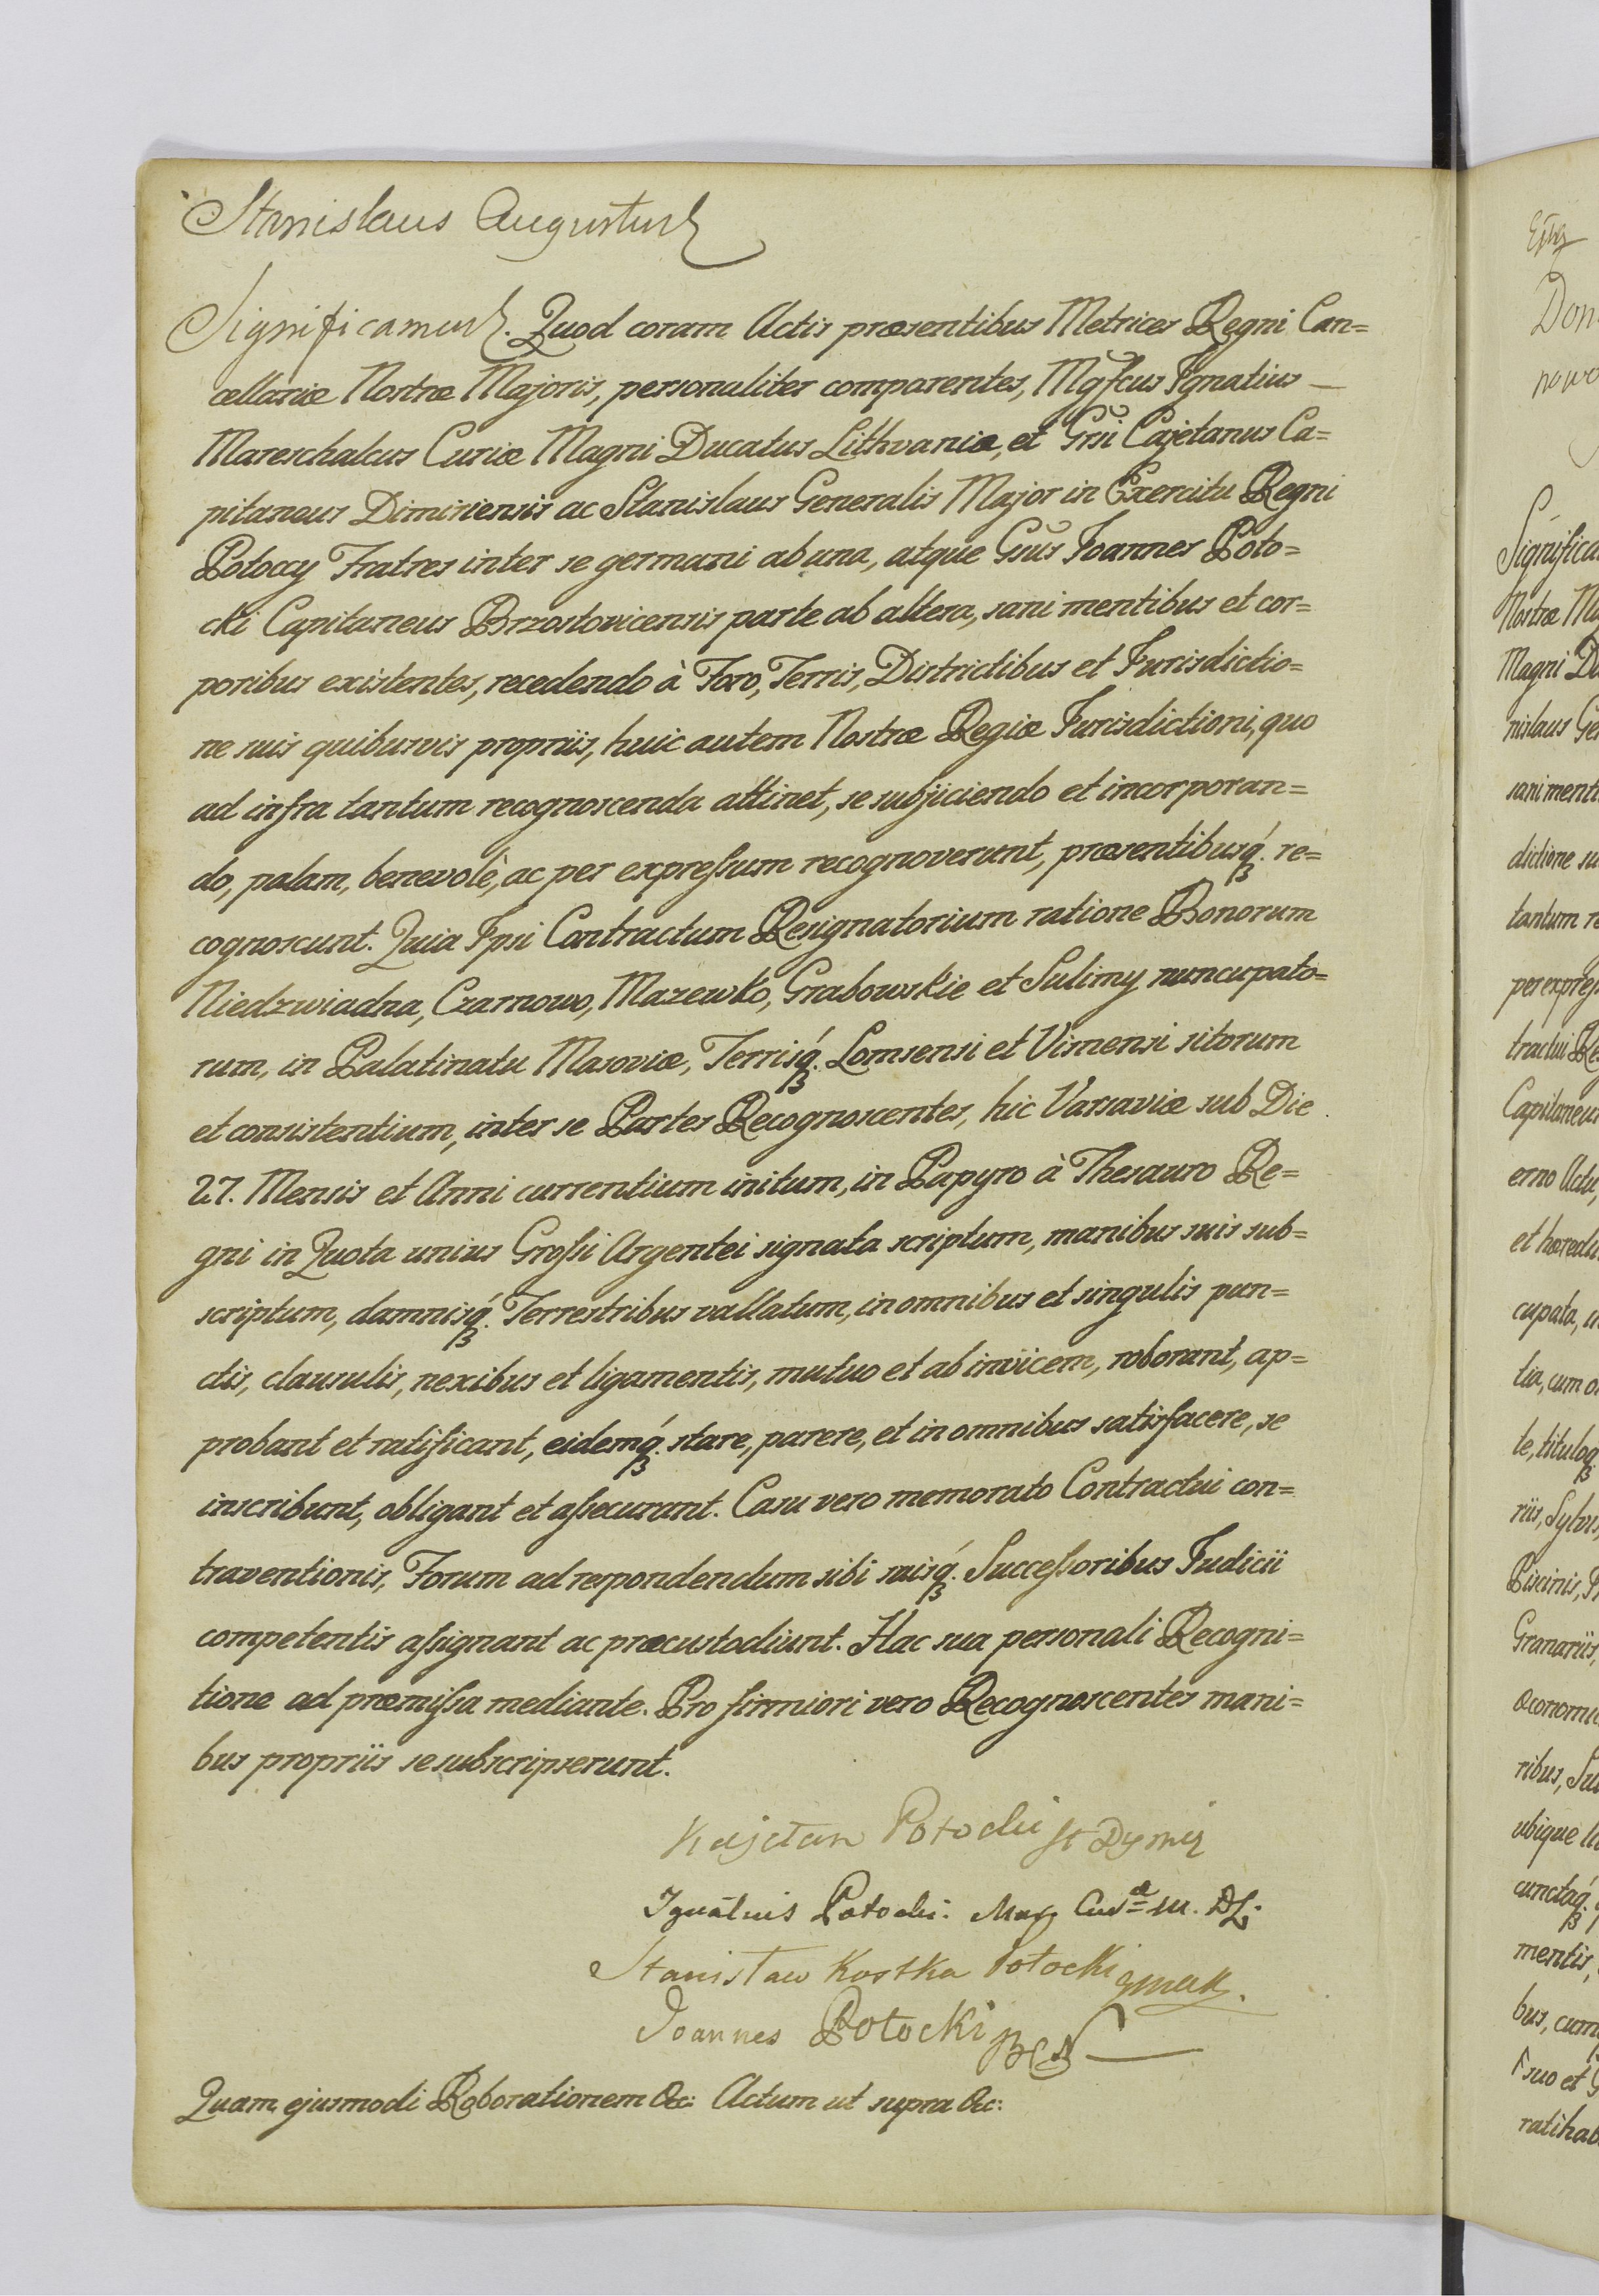 Stanislaus Augustus
Significamus. Quod coram Actis præsentibus Metrices Regni Can=
cellariæ Nostræ Majoris, personaliter comparentes, Mgfcus Ignatius —
Mareschalcus Curiæ Magni Ducatus Lithvaniæ, et Grsi Cajetanus Ca=
pitaneus Dimiriensis ac Stanislaus Generalis Major in Exercitu Regni
Potoccy Fratres inter se germani ab una, atque Gsus Joannes Poto=
cki Capitaneus Brzostovicensis parte ab altera, sani mentibus et cor=
poribus existentes, recedendo à Foro, Terris, Districtibus et Jurisdictio=
ne suis quibusvis propriis, huic autem Nostræ Regiæ Jurisdictioni, quo
ad infra tantum recognoscenda attinet, se subjiciendo et incorporan=
do, palam, benevolè, ac per expreſsum recognoverunt, præsentibusq́ꝫ. re=
cognoscunt. Quia Ipsi Contractum Resignatorium ratione Bonorum
Niedzwiadna, Czarnowo, Mazewko, Grabowskie et Sulimy nuncupato=
rum, in Palatinatu Masoviæ, Terrisq́ꝫ. Lomsensi et Visnensi sitorum
et consistentium, inter se Partes Recognoscentes, hic Varsaviæ sub Die
27. Mensis et Anni currentium initum, in Papyro à Thesauro Re=
gni in Quota unius Groſsi Argentei signata scriptum, manibus suis sub=
scriptum, damnisq́ꝫ. Terrestribus vallatum, in omnibus et singulis pun=
ctis, clausulis, nexibus et ligamentis, mutuo et ab invicem, roborant, ap=
probant et ratificant, eidemq́ꝫ. stare, parere, et in omnibus satisfacere, se
inscribunt, obligant et aſsecurant. Casu vero memorato Contractui con=
traventionis, Forum ad respondendum sibi suisq́ꝫ. Succeſsoribus Judicii
competentis aſsignant ac præcustodiunt. Hac sua personali Recogni=
tione ad præmiſsa mediante. Pro firmiori vero Recognoscentes mani=
bus propriis se subscripserunt.
Kajetan Potocki St Dymir
Ignatius Potocki. Mar Cur M. DL.
Stanisław Kostka Potocki
Joannes Potocki
Quam ejusmodi Roborationem &c: Actum ut supra &c:
Significa
Nostræ Ma
Magni Du
nislaus Ge
sani menti
dictione su
tantum re
per expreſ
tractui Re
Capitaneus
erno Actu,
et hæredu
cupata, in
tia, cum o
te, tituloq́ꝫ
riis, Sylvis,
Piscinis, P
Granariis,
œconomic
ribus, Su
ubique li
cunctaq́ꝫ.
mentis,
bus, cum
suo et G
ratihab